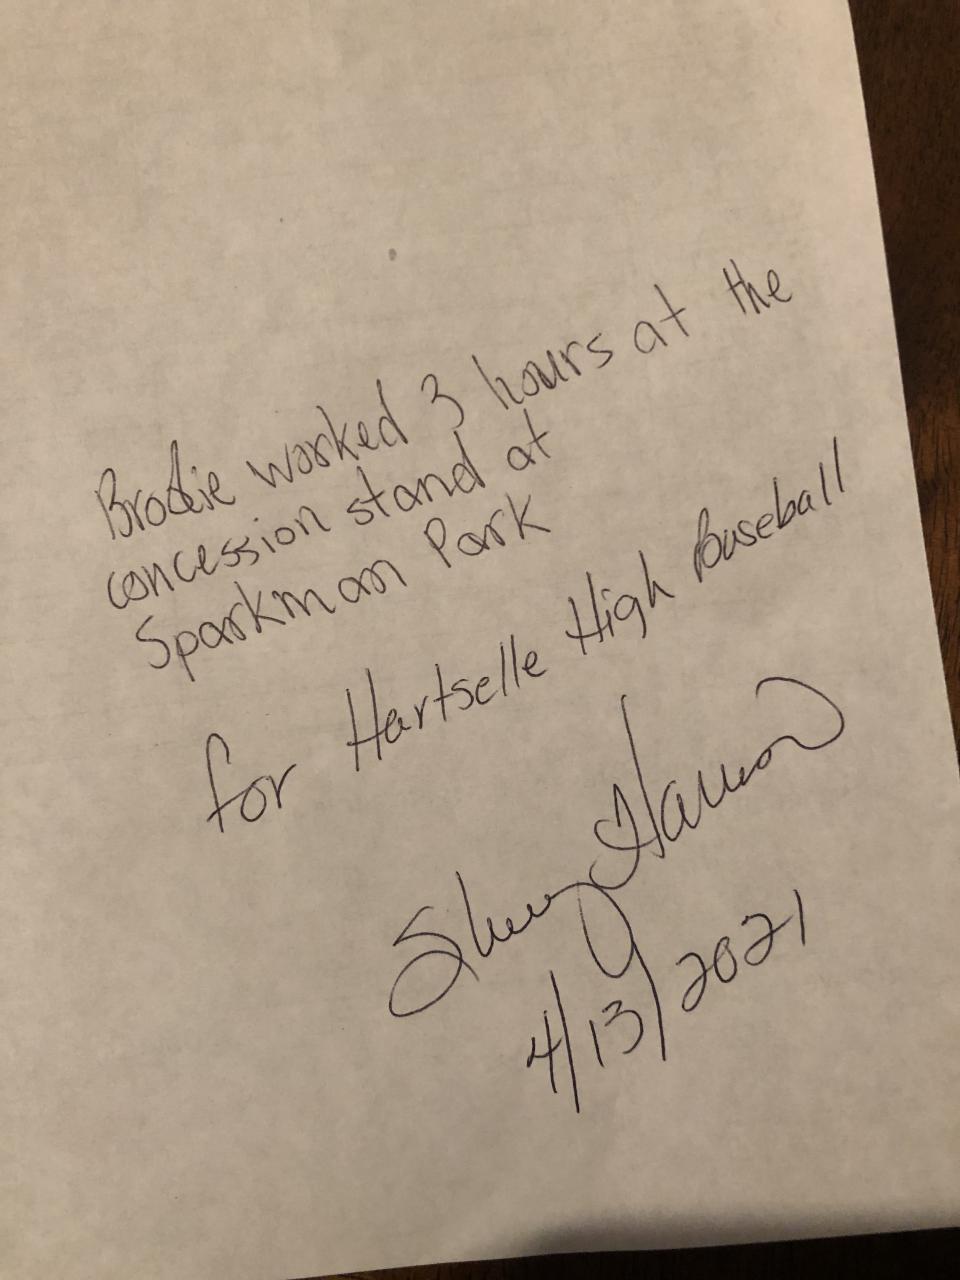 Brodie worked 3 hours at the
concession stand at
Sparkman Park
for Hartselle High Baseball
4/13/2021